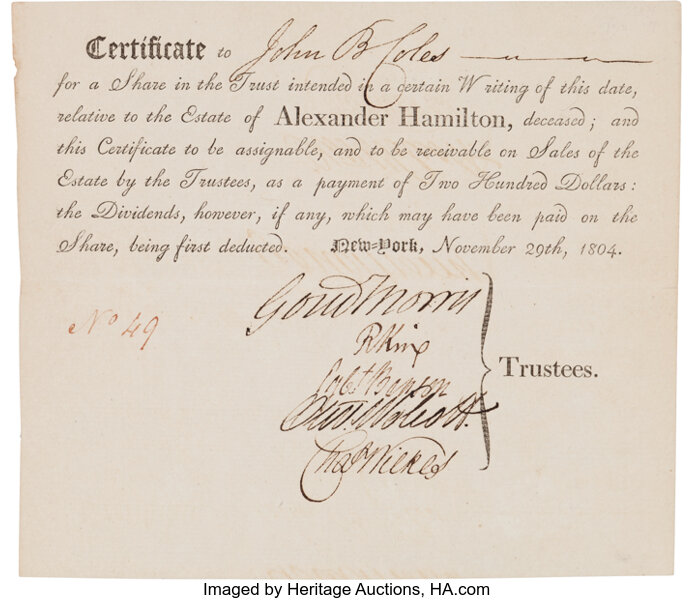 Certificate to John B Coles
for a Share in the Trust intended in a certain Writing of this date,
relative to the Estate of Alexander Hamilton, deceased; and
this Certificate to be assignable, and to be receivable on Sales of the
Estate by the Trustees, as a payment of Two Hundred Dollars:
the Dividends, however, if any, which may have been paid on the
Share, being first deducted. New-York, November 29th, 1804.
Gouv Morris
No 49
R King
Egbt Benson
Trustees.
Oliv. Wolcott.
Chas Wilkes
Imaged by Heritage Auctions, HA.com